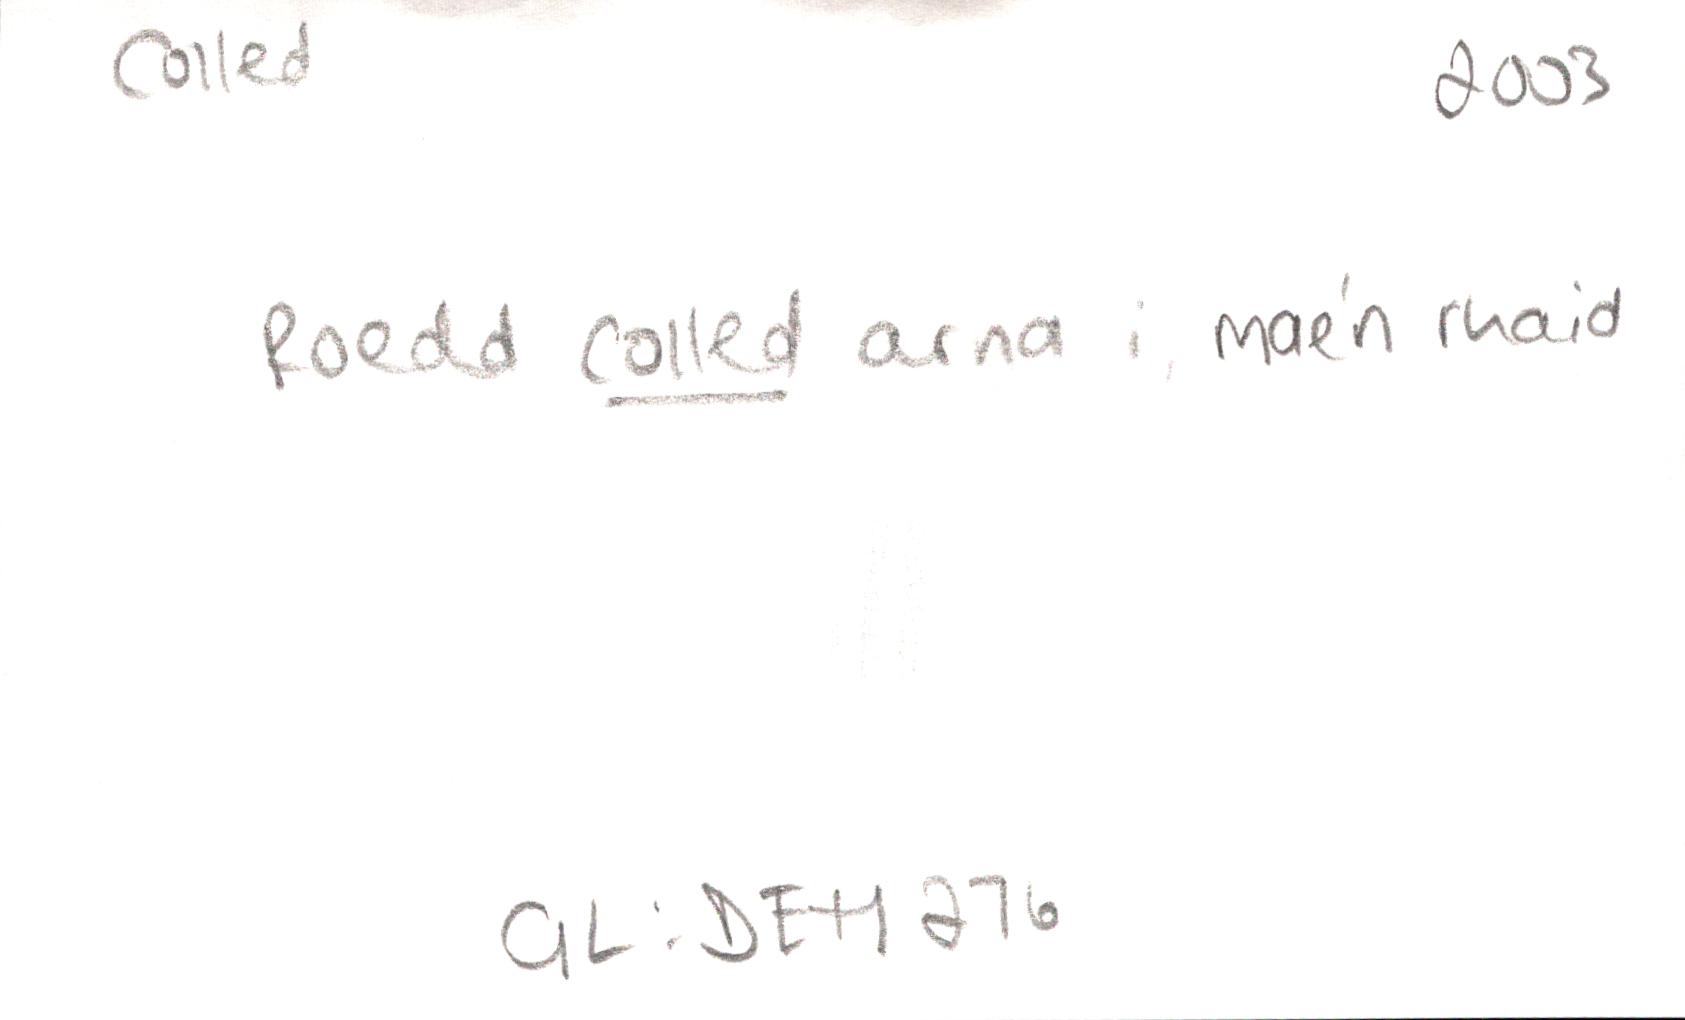 Colled 2003
Roedd colled arna i, mae'n rhaid
GL: DEH 276